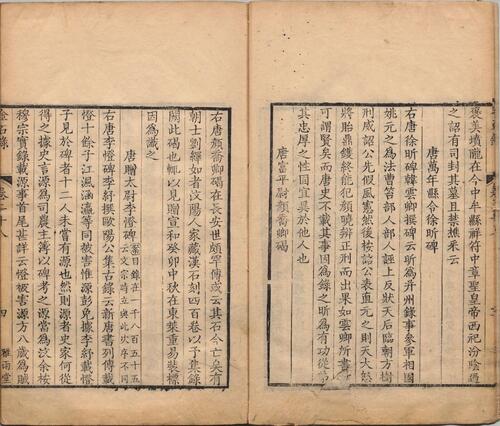 褒美墳隴在今中牟縣祥符中章聖皇帝西祀汾陰過
之詔有司封其墓且禁樵采云
唐萬年縣令徐昕碑
右唐徐昕碑韓雲卿撰碑云昕為并州錄事參軍相國
姚元之為法曹笞部人部人誣上反狀天后臨朝方樹
刑威詔公先假風憲然後按詥公表直元之則天大怒
將胎鼎鑊終能犯顏曉辨正刑而出果如雲卿所書
可謂賢矣而唐史不載其事因為錄之昕為有功從弟
其忠厚之性固異於他人也
唐富平尉顏喬卿碣
右唐顏喬卿碣在長安世頗罕傳或云其石今亡矣有
朝士劉繹如者汶陽人家藏漢石刻四百卷以予集錄
闕此碣也輒以見贈宣和癸卯中秋在東萊重易裝標
因為識之
唐贈太尉李憕碑 目錄在一千八百五十五
云文宗時立與此次序不同
右唐李憕碑李紓撰歐陽公集古錄云新唐書列傳載
憕十餘子江涵渢瀛等同被害惟源彭免據李紓載憕
子見於碑者十二人未嘗有源也然則源者史家何從
得之據史言源為司農主簿以碑考之源當為汶余按
穆宗實錄載源事首尾甚詳云憕被害源方八歲為賊
金石錄
卷二十八
四
雅雨堂